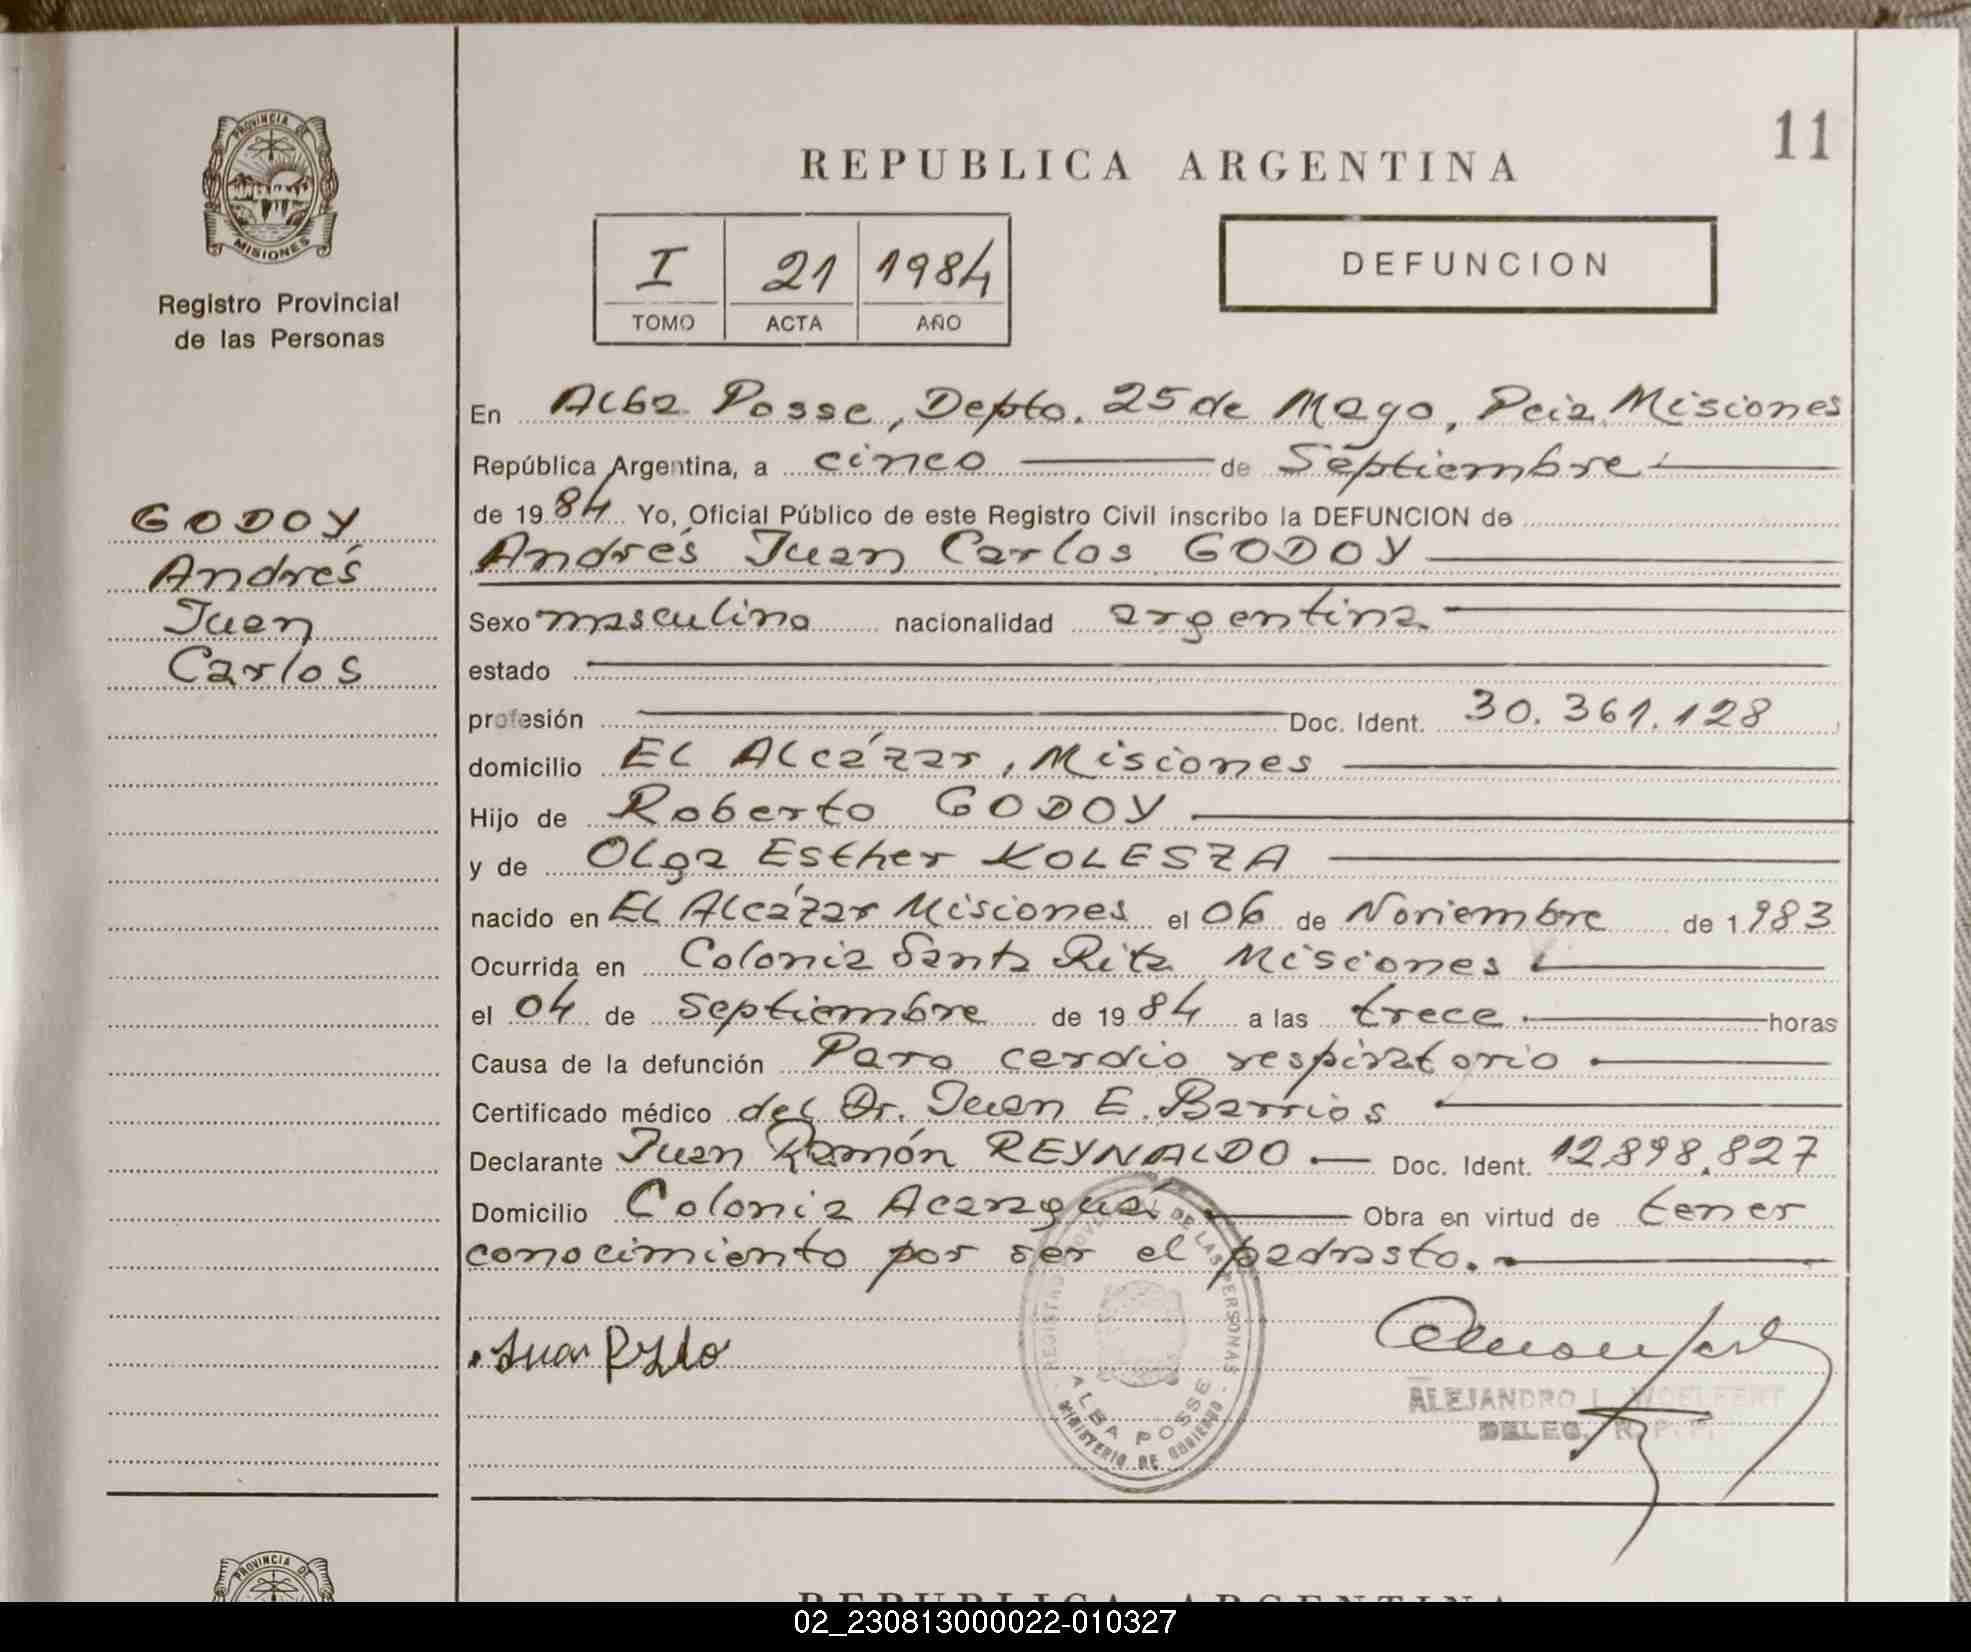 PROVINCIA DE
MISIONES
Registro Provincial
de las Personas
GODOY
Andrés
Juan
Carlos
11
REPUBLICA ARGENTINA
I 21 1984
TOMO ACTA AÑO
DEFUNCION
En Alba Posse, Depto. 25 de Mayo, Pcia Misiones
República Argentina, a cinco de Septiembre
de 1984 Yo, Oficial Público de este Registro Civil inscribo la DEFUNCION de
Andrés Juan Carlos GODOY
Sexo masculino nacionalidad argentina
estado
profesión Doc. Ident. 30.361.128
domicilio El Alcázar, Misiones
Hijo de Roberto GODOY
y de Olga Esther KOLESZA
nacido en El Alcázar Misiones el 06 de Noviembre de 1983
Ocurrida en Colonia Santa Rita Misiones
el 04 de Septiembre de 1984 a las trece horas
Causa de la defunción Paro cardio respiratorio
Certificado médico del Dr. Juan E. Barrios
Declarante Juan Ramón REYNALDO Doc. Ident. 12.898.827
Domicilio Colonia Acaraguá Obra en virtud de tener
conocimiento por ser el padrasto.
REGISTRO PROVINCIAL DE LAS PERSONAS
ALBA POSSE
MINISTERIO DE GOBIERNO
Juan
ALEJANDRO L. WOELFERT
DELEG. R. P. P.
PROVINCIA DE
REPUBLICA ARGENTINA
02_230813000022-010327